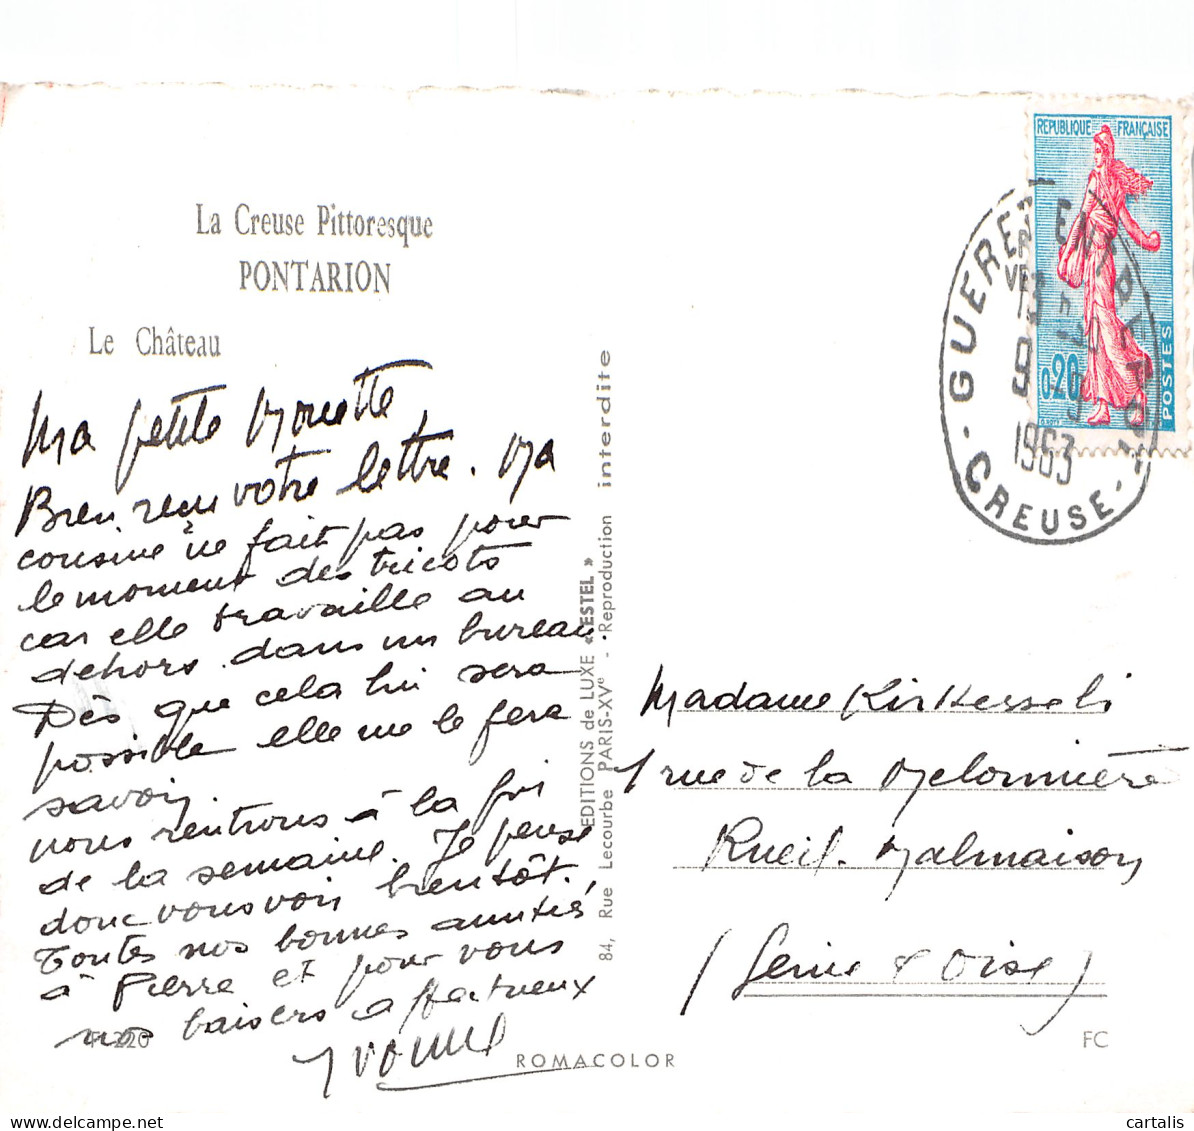 La Creuse Pittoresque
PONTARION
Le Château
Ma petite Monette,
Bien reçu votre lettre. Ma
cousine ne fait pas pour
le moment des tricots
car elle travaille au
dehors dans un bureau
Dès que cela lui sera
possible elle me le fera
savoir.
nous rentrons à la fin
de la semaine. Je pense
donc vous voir bientôt.
Toutes nos bonnes amitiés
à Pierre et pour vous
nos baisers affectueux
Yvonne
EDITIONS de LUXE « ESTEL »
84, Rue Lecourbe PARIS-XVe - Reproduction interdite
ROMACOLOR
FC
REPUBLIQUE FRANÇAISE
0,20
POSTES
GUERET ENTREPOT
9
1963
CREUSE
Madame
1 rue de la Melonnière
Rueil-Malmaison
(Seine & Oise)